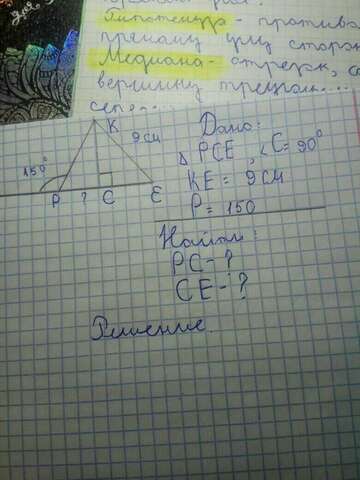 Гипотенуза - против
прямому углу сторон
Медиана - отрезок, со
вершину треугол...
K
9 см
150°
P ? C E
Дано:
△ PCE, ∠C = 90°
KE = 9 см
P = 150
Найти:
PC - ?
CE - ?
Решение.